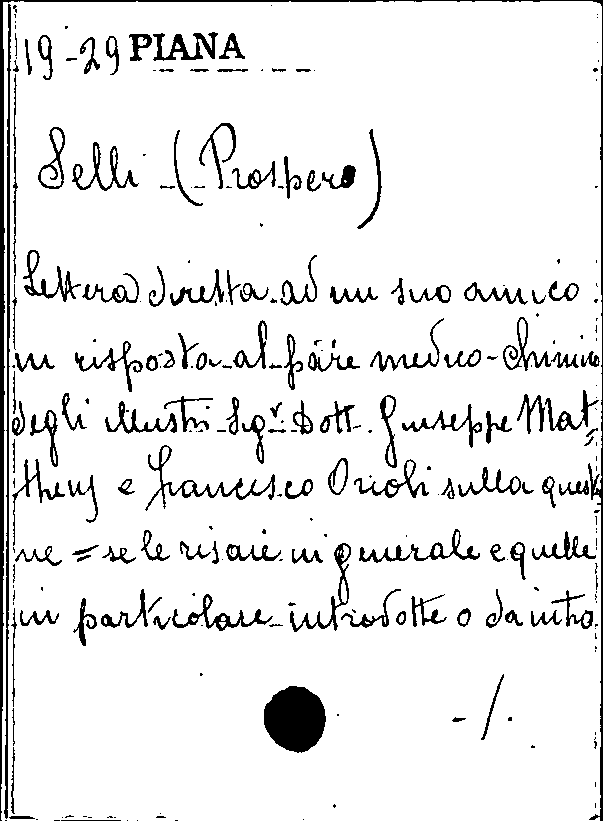 19-29 PIANA
Selli (Prospero)
Lettera diretta ad un suo amico
in risposta al parére medico-Chimico
degli illustri Sigr. Dott. Giuseppe Mat=
theys e Francesco Orioli sulla questio
ne = se le risaie in generale e quelle
in particolare introdotte o da intro
-/.